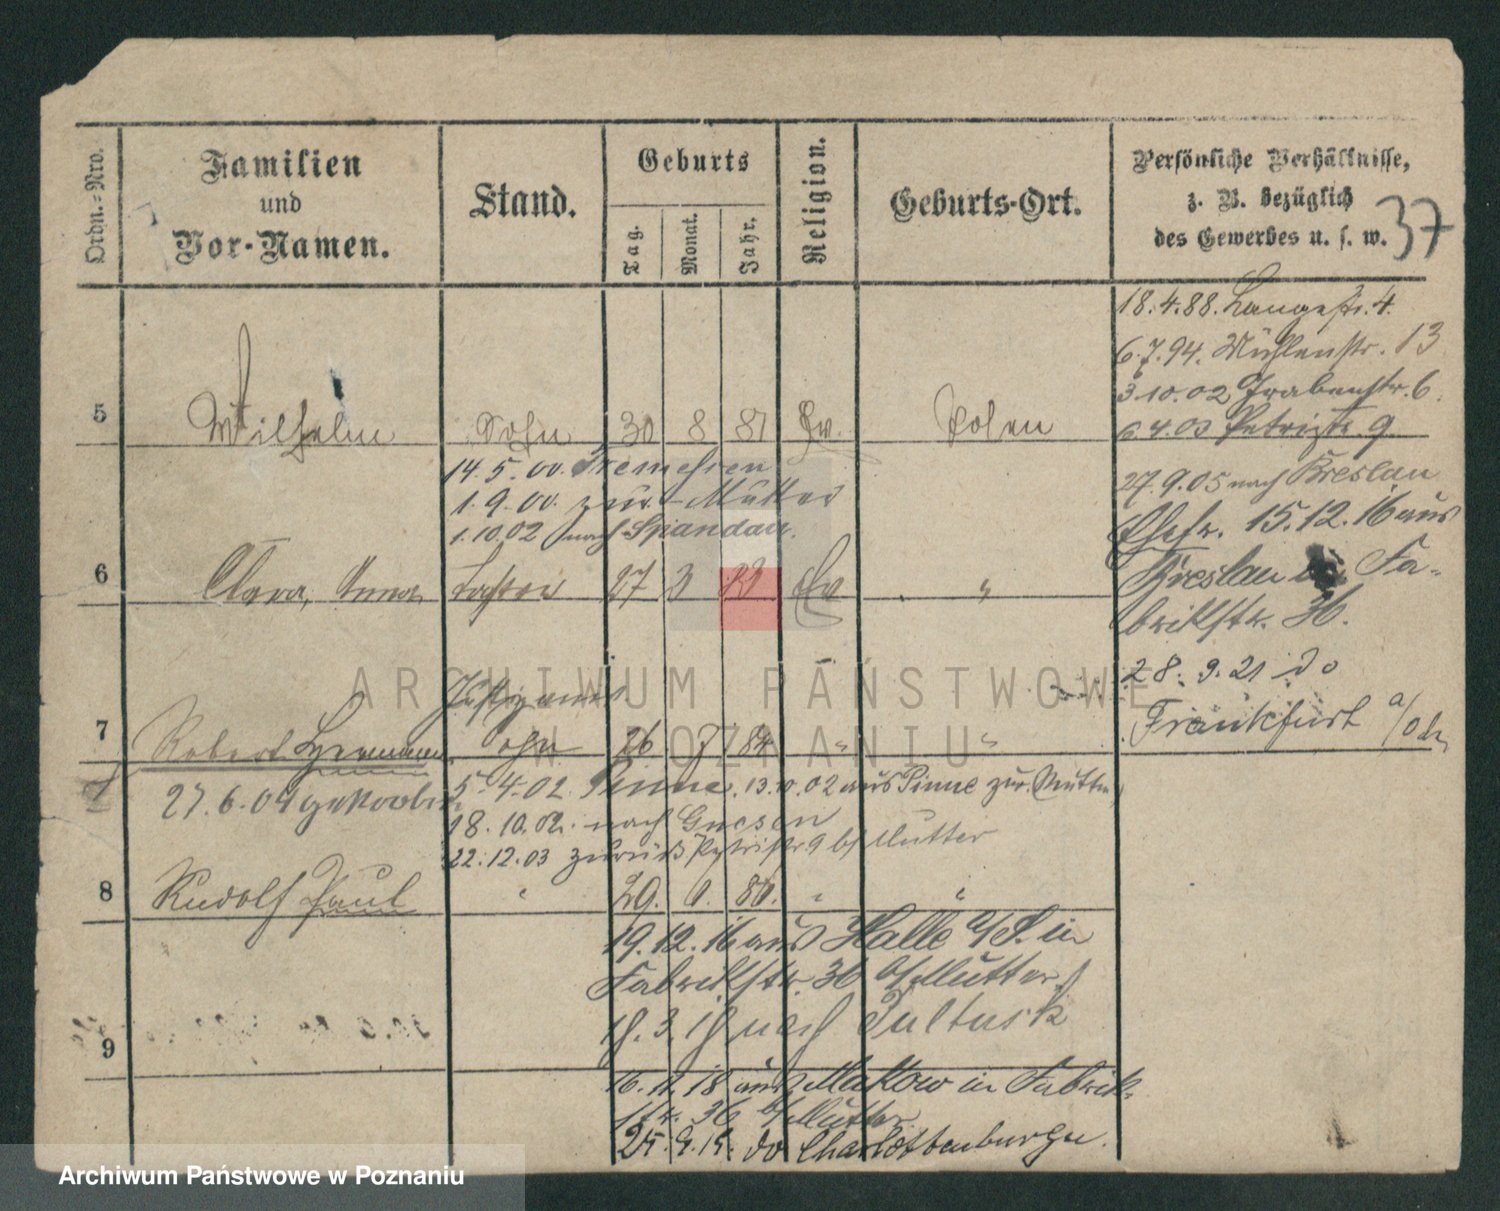 Ordn.=Nro.
Familien
und
Vor-Namen.
Stand.
Geburts
Tag.
Monat.
Jahr.
Religion.
Geburts-Ort.
Persönliche Verhältnisse,
z. B. bezüglich
des Gewerbes u. s. w.
37
18.4.88. Langestr. 4.
6.7.94. Mühlenstr. 13
3.10.02 Grabenstr. 6.
6.4.03 Petristr. 9.
5 Wilhelm Sohn 30 8 81 Ev. Posen
14.5.00. Tremessen
1.9.00. zur Mutter
1.10.02 nach Spandau.
27.9.05 nach Breslau
Ehefr. 15.12.16 aus
Breslau Fa-
brikstr. 36.
6 Clara, Anna Tochter 27 3 Ev "
28.9.21 do
Frankfurt a/Od.
7 Robert Hermann Sohn 26 7 84 " "
27.6.04
5.4.02. Pinne. 13.10.02 aus Pinne zur Mutter
18.10. nach Gnesen
22.12.03 zurück Petristr 9 b/Mutter
8 Rudolf Paul " 29. 86. " "
19.12.16 aus Halle a/S. in
Fabrikstr. 36 b/Mutter.
nach Pultusk
9
16.11.18 aus Makow in Fabrik-
str. 36 b/Mutter
do Charlottenburg
ARCHIWUM PAŃSTWOWE
W POZNANIU
Archiwum Państwowe w Poznaniu